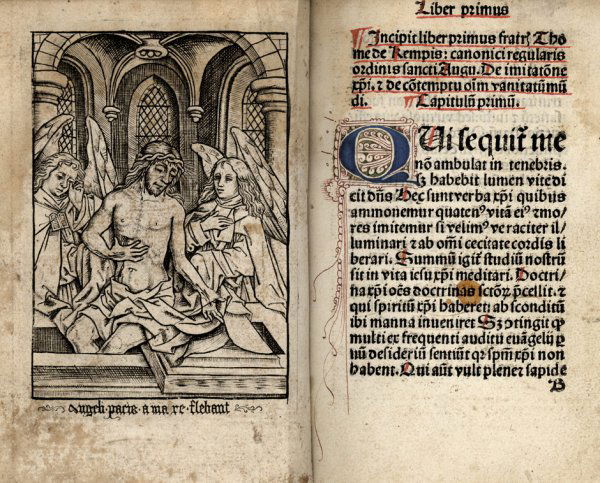 Angeli · pacis · amare · flebant
Liber primus
Incipit liber primus fratr̃ Tho
me de Kempis: canonici regularis
ordinis sancti Augu. De imitatõne
xp̃i. ⁊ de cõtemptu oĩm vanitatũ mũ
di. Capitulũ primũ.
Qui sequit̃ me
nõ ambulat in tenebris.
sꝫ habebit lumen vite di
cit dñs Hec sunt verba xp̃i quibus
ammonemur quatenꝰ vitã eiꝰ ⁊ mo
res imitemur si velimꝰ veraciter il
luminari ⁊ ab omĩ cecitate cordis li
berari. Summũ igit̃ studiũ nostrũ
sit in vita iesu xp̃i meditari. Doctri/
na xp̃i oẽs doctrinas sctõꝝ p̃cellit. ⁊
qui spiritũ xp̃i haberet: ab sconditũ
ibi manna inveniret Sꝫ ↄtingit ꝙ
multi ex frequenti auditu euãgelij ꝑ
vũ desideriũ sentiũt qꝛ spm̃ xp̃i non
habent. Qui aũt vult plene ⁊ sapide
B